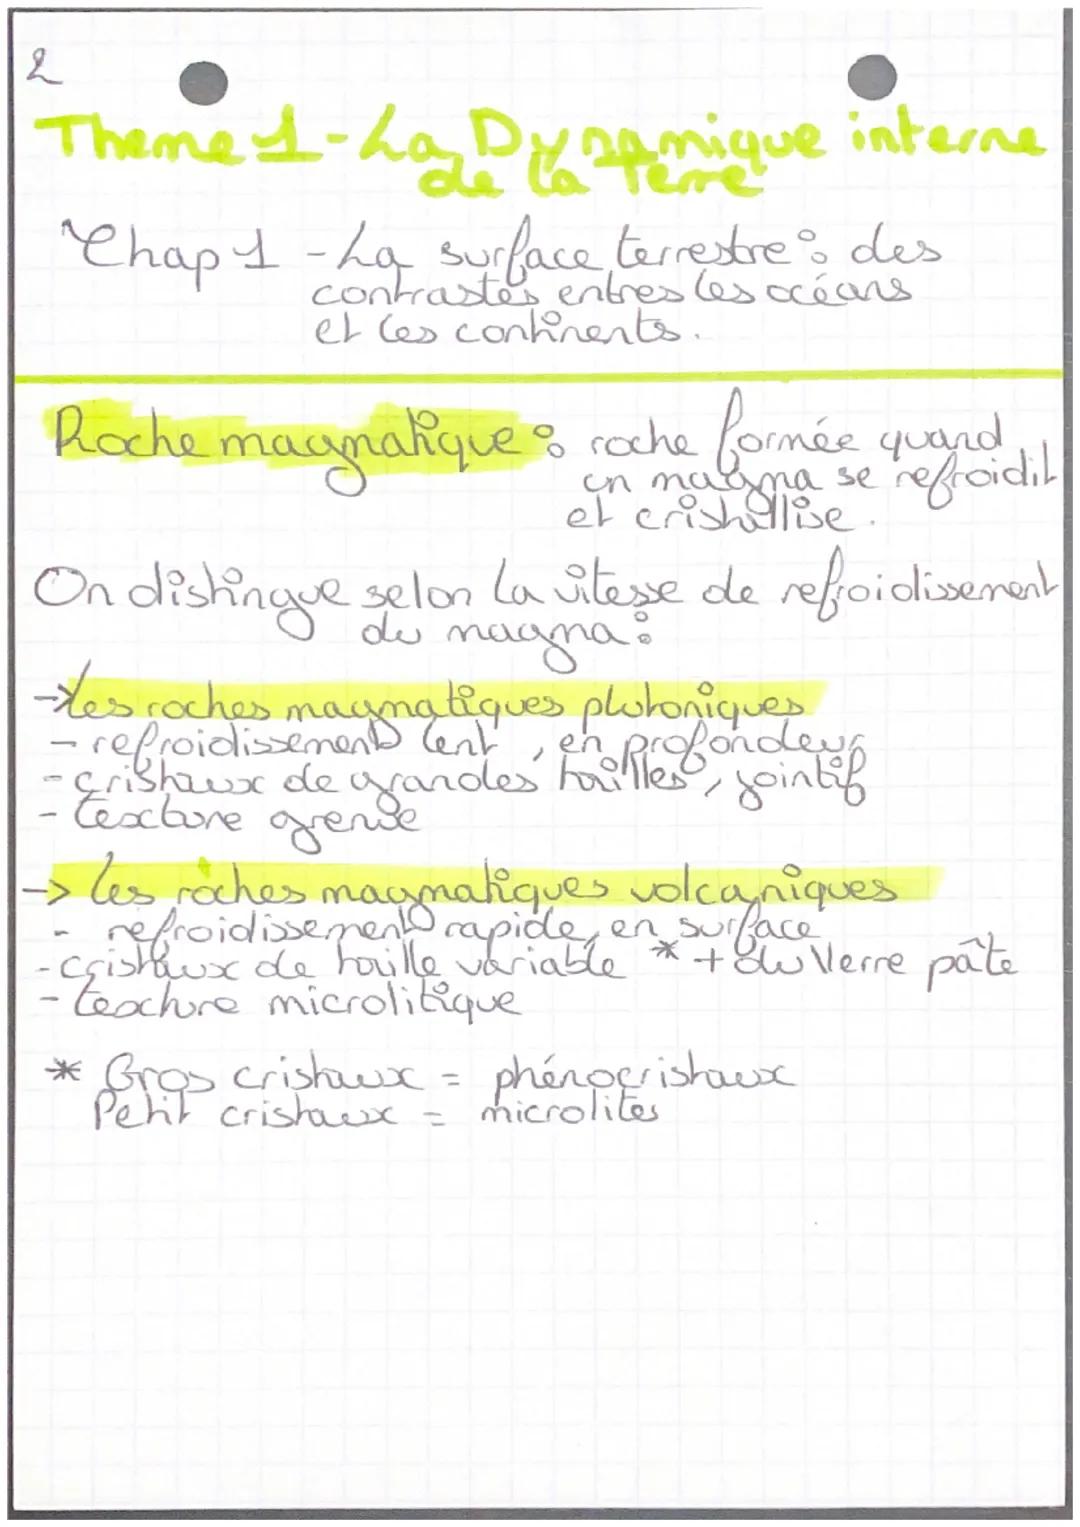 2
Theme 1 - La Dynamique interne
de la Terre
Chap 1 - La surface terrestre : des
contrastes entres les océans
et les continents.
Roche magmatique : roche formée quand
un magma se refroidit
et cristallise.
On distingue selon la vitesse de refroidissement
du magma :
→ les roches magmatiques plutoniques
- refroidissement lent, en profondeur
- cristaux de grandes tailles, jointif
- texture grenue
→ les roches magmatiques volcaniques
- refroidissement rapide, en surface
- cristaux de taille variable * + du Verre pâte
- texture microlitique
* Gros cristaux = phénocristaux
Petit cristaux = microlites